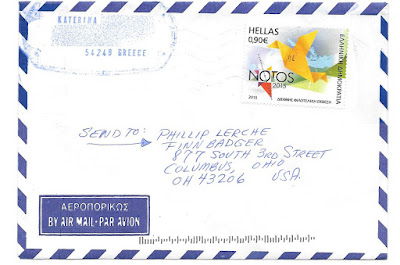 KATERINA
54248 GREECE
HELLAS
0,90€
ΕΛΛΗΝΙΚΗ ΔΗΜΟΚΡΑΤΙΑ
NOTOS
2015
2015 ΔΙΕΘΝΗΣ ΦΙΛΟΤΕΛΙΚΗ ΕΚΘΕΣΗ
SEND TO: PHILLIP LERCHE
FINN BADGER
877 SOUTH 3RD STREET
COLUMBUS, OHIO
OH 43206 USA.
ΑΕΡΟΠΟΡΙΚΩΣ
BY AIR MAIL·PAR AVION